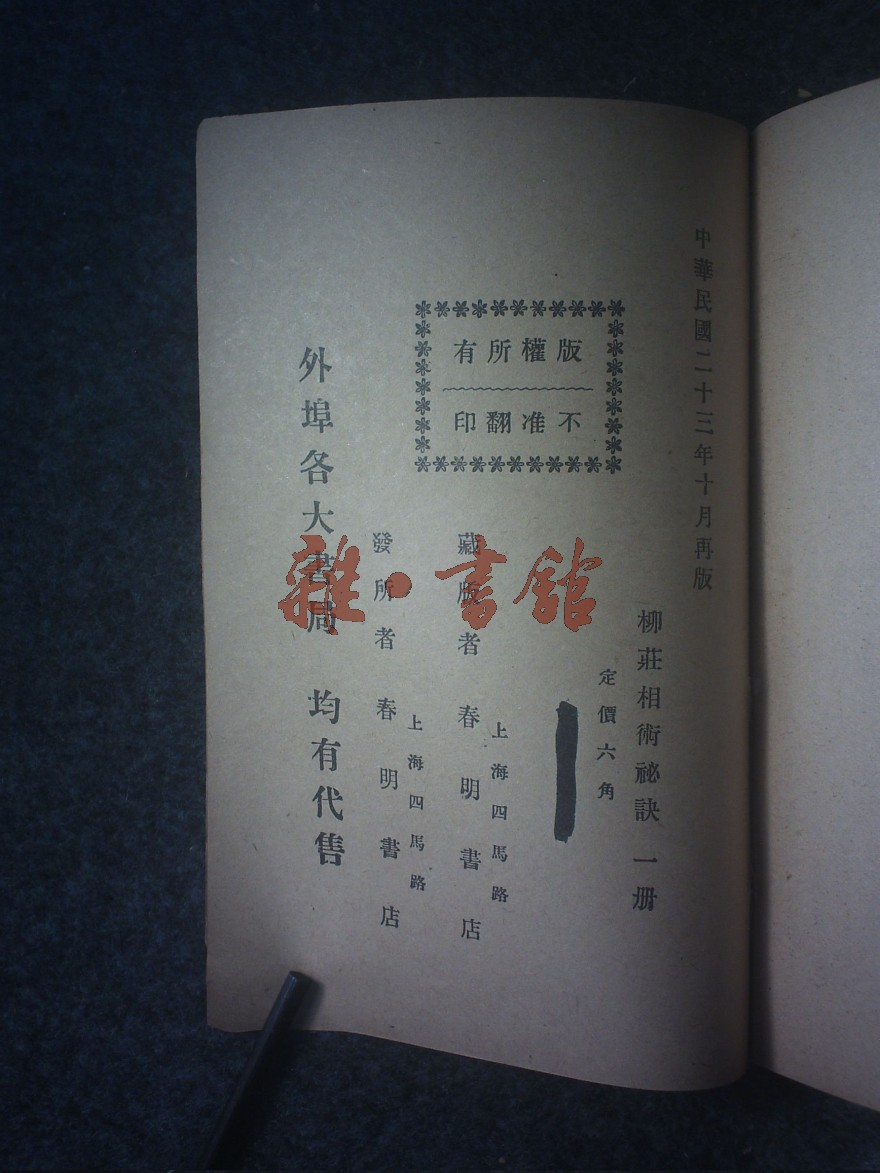 中華民國二十三年十月再版
柳莊相術祕訣 一册
定價六角
版權所有
不准翻印
上海四馬路
藏版者 春明書店
上海四馬路
發所者 春明書店
外埠各大書局 均有代售
雜·書館